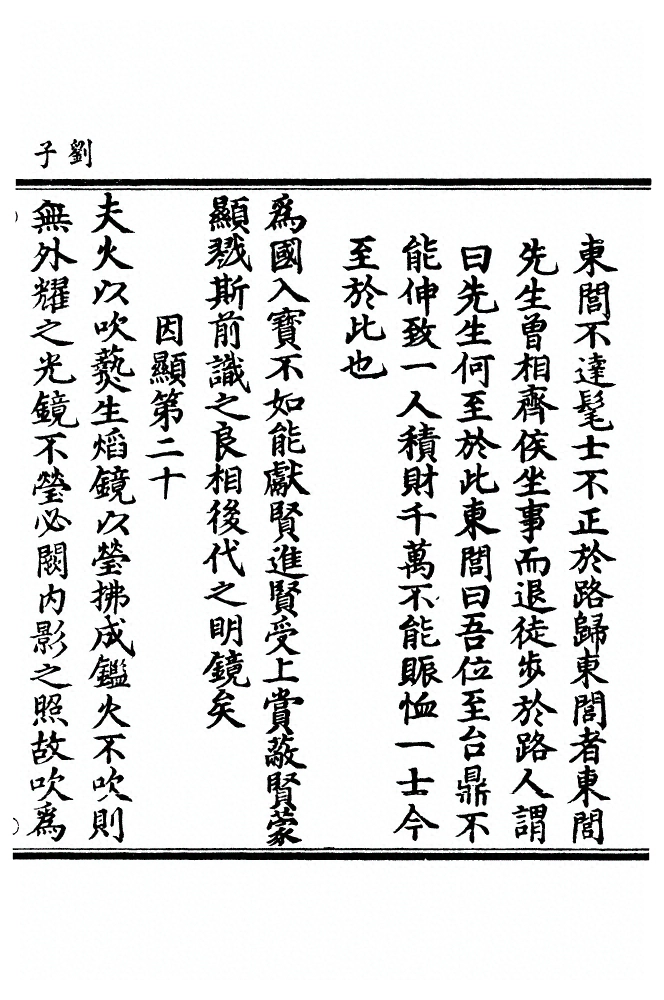 劉子
東閭不達髦士不正於路歸東閭者東閭
先生曾相齊侯坐事而退徒步於路人謂
曰先生何至於此東閭曰吾位至台鼎不
能伸致一人積財千萬不能賑恤一士今
至於此也
為國入寶不如能獻賢進賢受上賞蔽賢蒙
顯戮斯前識之良相後代之明鏡矣
因顯第二十
夫火以吹爇生焰鏡以瑩拂成鑑火不吹則
無外耀之光鏡不瑩必闕內影之照故吹為